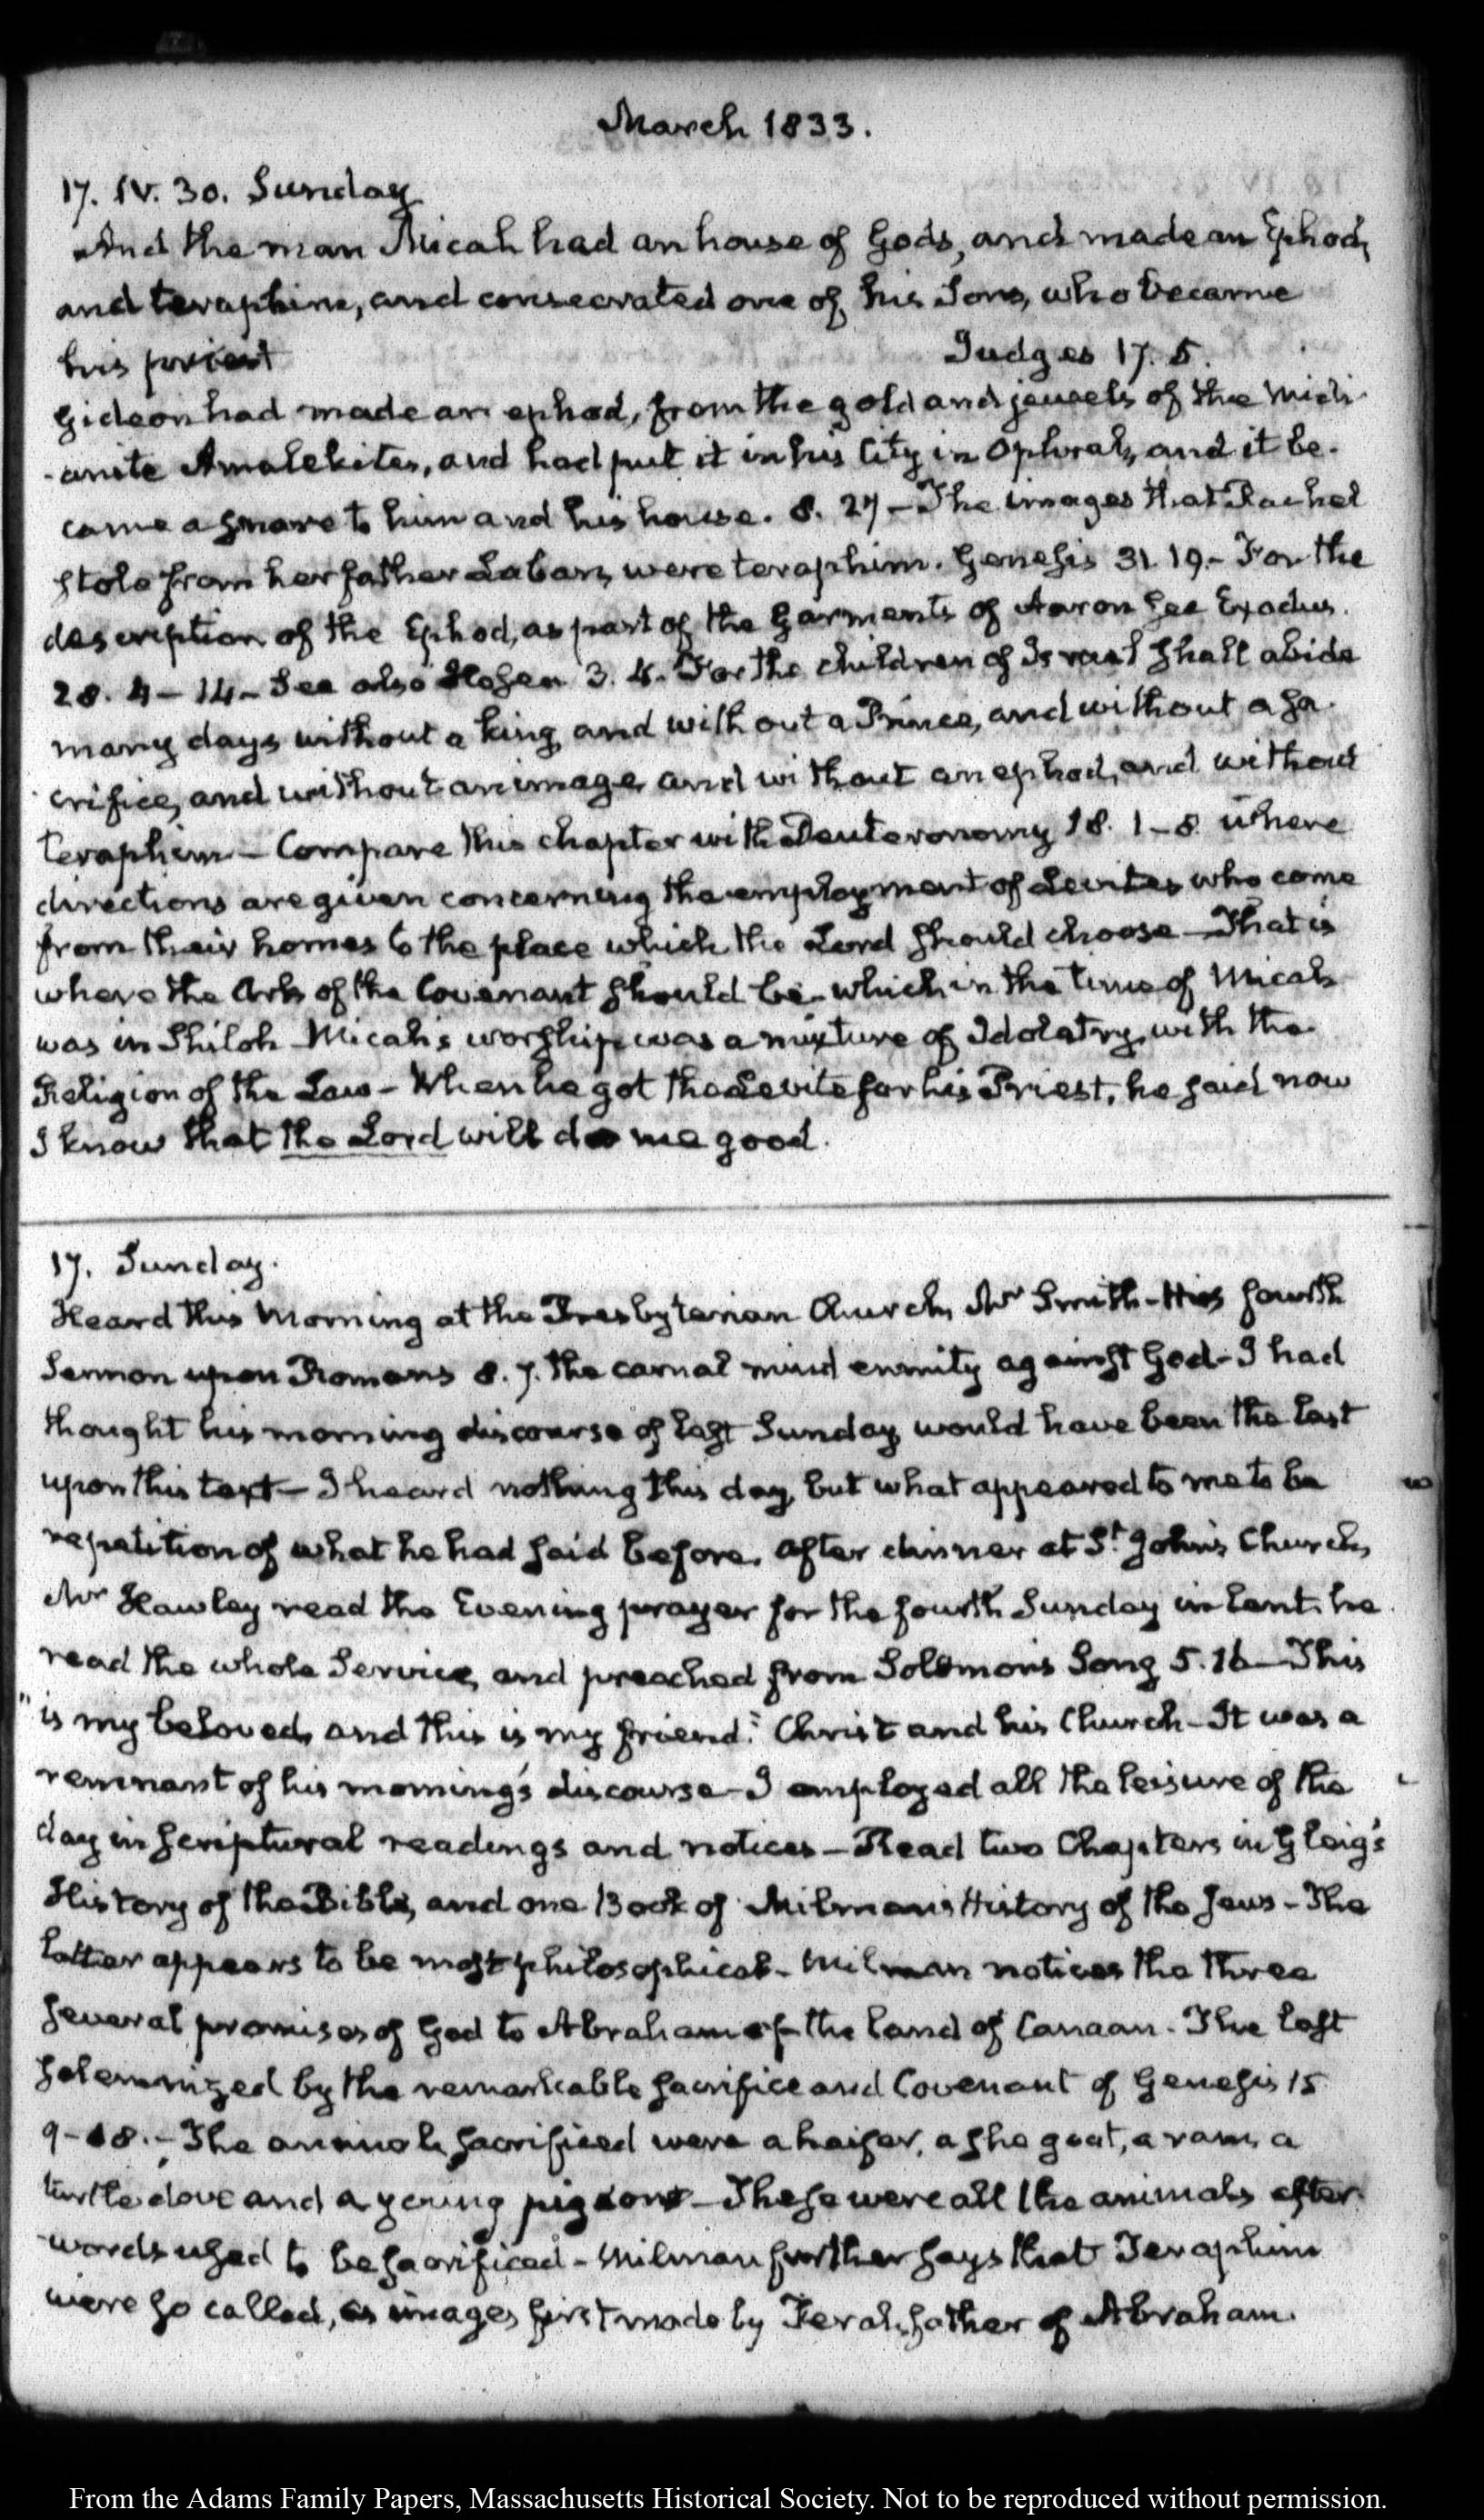 March 1833.
17. IV. 30. Sunday
And the man Micah had an house of Gods, and made an Ephod,
and teraphim, and consecrated one of his Sons, who became
his priest Judges 17. 5.
Gideon had made an ephod, from the gold and jewels of the Midi-
-anite Amalekites, and had put it in his City in Ophrah, and it be-
came a snare to him and his house. 8. 27 - The images that Rachel
stole from her father Laban, were teraphim. Genesis 31. 19. - For the
description of the Ephod, as part of the Garments of Aaron see Exodus.
28. 4 - 14 - See also Hosea 3. 4. For the children of Israel shall abide
many days without a king, and without a Prince, and without a sa-
crifice, and without an image, and without an ephod, and without
teraphim - Compare this chapter with Deuteronomy 18. 1 - 8. where
directions are given concerning the employment of Levites who come
from their homes to the place which the Lord should choose - That is
where the Ark of the Covenant should be - which in the time of Micah
was in Shiloh - Micah's worship was a mixture of Idolatry, with the
Religion of the Law - When he got the Levite for his Priest, he said now
I know that the Lord will do me good.
17. Sunday.
Heard this Morning at the Presbyterian Church, Mr Smith - His fourth
Sermon upon Romans 8. 7. the carnal mind enmity against God - I had
thought his morning discourse of last Sunday would have been the last
upon this text - I heard nothing this day, but what appeared to me to be
repetition of what he had said before. After dinner at St. John's Church,
Mr Hawley read the Evening prayer for the fourth Sunday in Lent. he
read the whole Service, and preached from Solomon's Song 5. 16 - This
"is my beloved, and this is my friend." Christ and his Church - It was a
remnant of his morning's discourse - I employed all the leisure of the
day in scriptural readings and notices - Read two Chapters in Gleig's
History of the Bible, and one Book of Milman's History of the Jews - The
latter appears to be most philosophical - Milman notices the three
several promises of God to Abraham of the land of Canaan. The last
solemnized by the remarkable sacrifice and Covenant of Genesis 15
9 - 18. - The animals sacrificed were a heifer, a she goat, a ram, a
turtle dove and a young pigeon - These were all the animals after-
-wards used to be sacrificed - Milman further says that Teraphim
were so called, as images first made by Terah, father of Abraham.
From the Adams Family Papers, Massachusetts Historical Society. Not to be reproduced without permission.